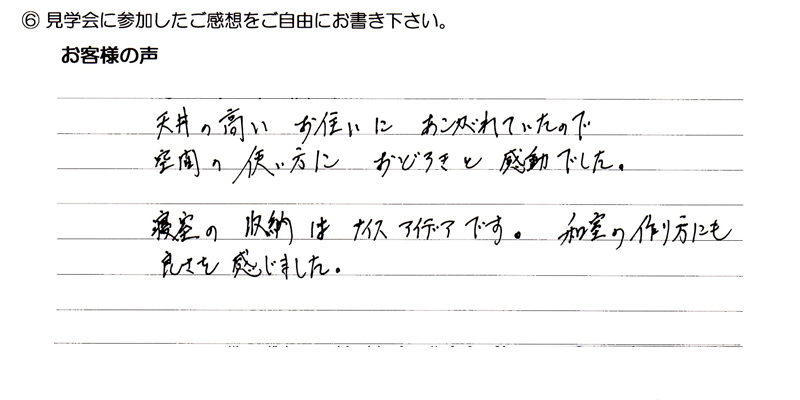 ⑥ 見学会に参加したご感想をご自由にお書き下さい。
お客様の声
天井の高い お住いに あこがれていたので
空間の 使い方に おどろきと 感動でした。
寝室の 収納は ナイスアイデアです。 和室の作り方にも
良さを 感じました。